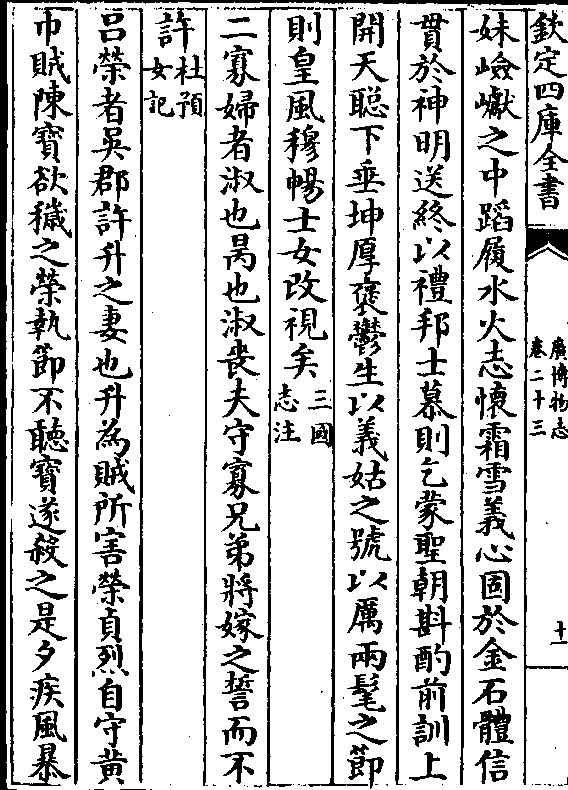 欽定四庫全書
廣博物志
卷二十三
十一
妹嶮巘之中蹈履水火志懷霜雪義心固於金石體信
貫於神明送終以禮邦士慕則乞蒙聖朝斟酌前訓上
開天聰下垂坤厚褒鬱生以義姑之號以厲兩髦之節
則皇風穆暢士女改視矣三國志注
二寡婦者淑也昺也淑喪夫守寡兄弟將嫁之誓而不
許杜預女記
吕榮者吳郡許升之妻也升為賊所害榮貞烈自守黄
巾賊陳寶欲穢之榮執節不聽寶遂殺之是夕疾風暴